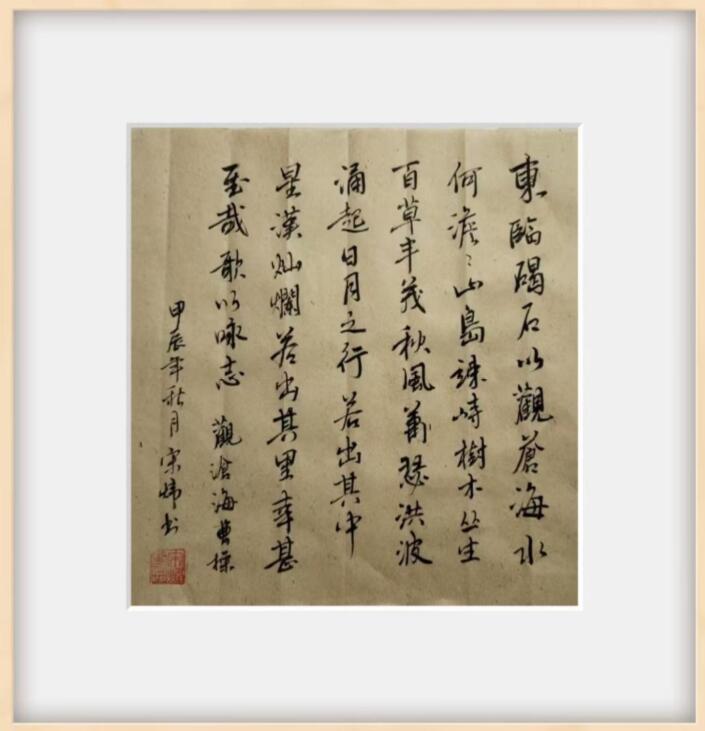 東臨碣石以觀蒼海水
何澹〻山島竦峙樹木丛生
百草丰茂秋風蕭瑟洪波
涌起日月之行若出其中
星漢灿爛若出其里幸甚
至哉歌以咏志 觀滄海曹操
甲辰年秋月宋书